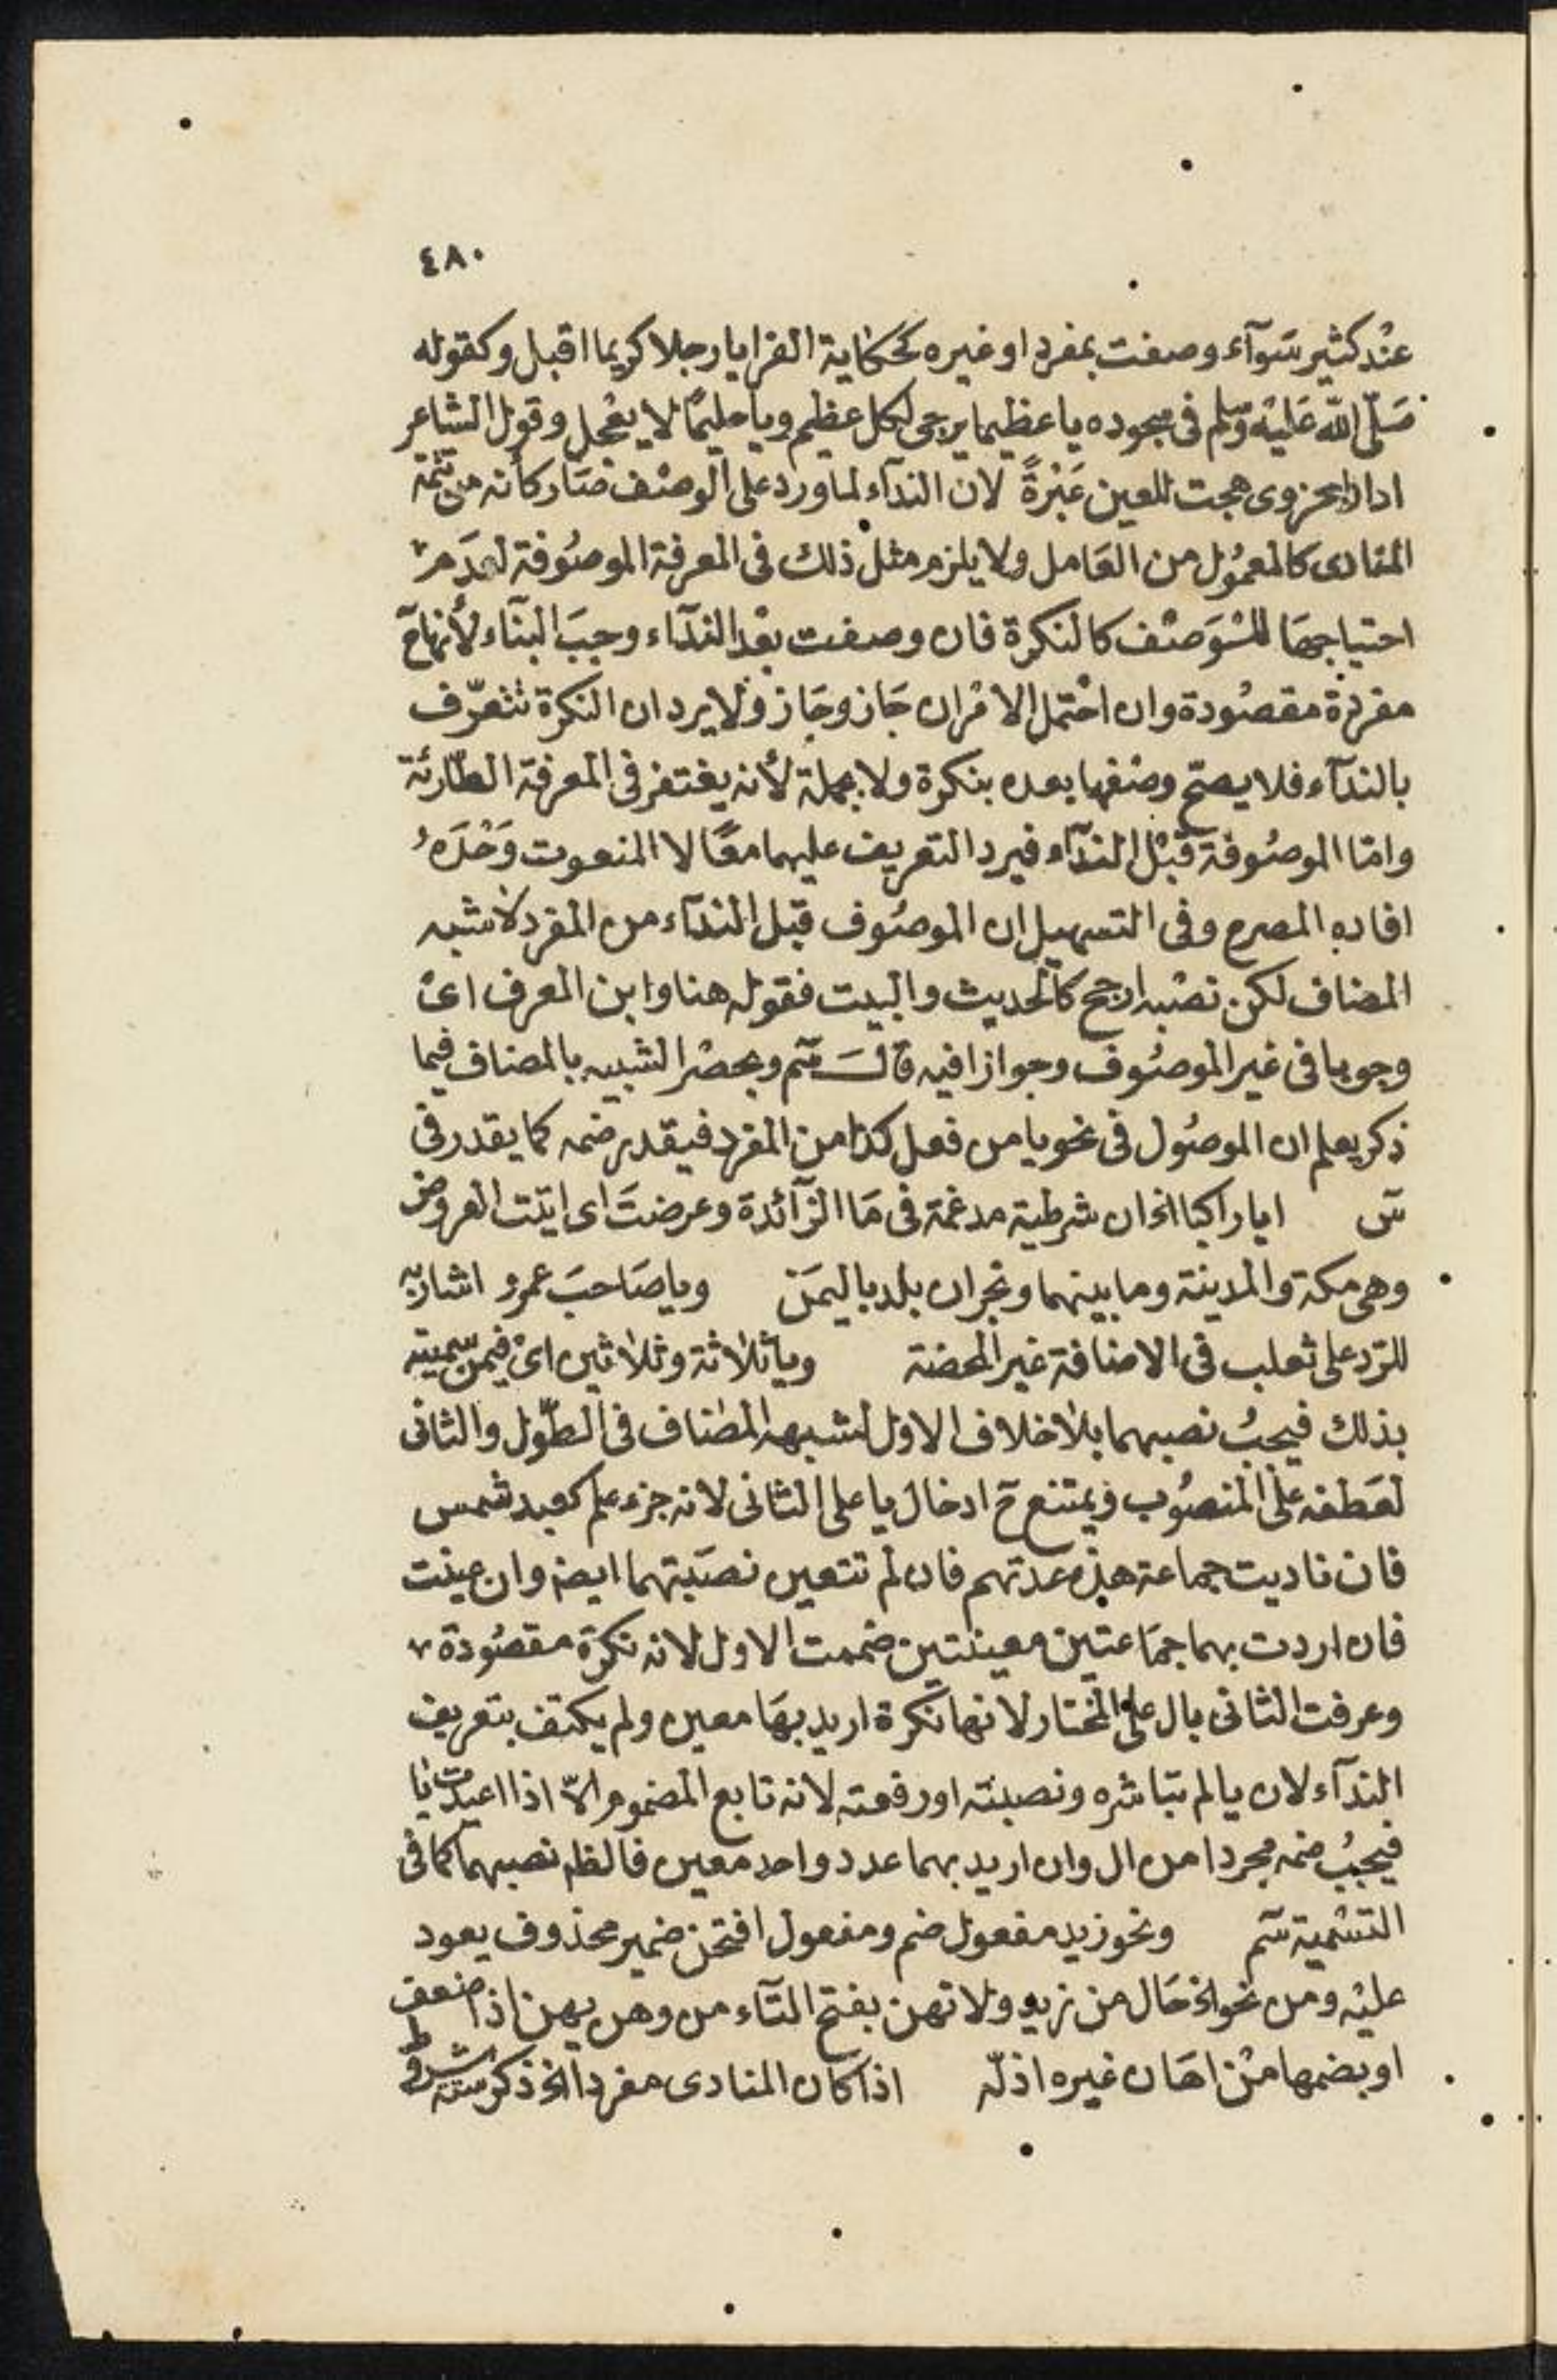 ٤٨٠
عند كثير سوآء وصفت بمفرد او غيره كحكاية الفرا يا رجلا كريما اقبل وكقوله
صلّى الله عليه وسلم فى سجوده يا عظيما يرجى لكل عظيم ويا حليمًا لا يعجل وقول الشاعر
ادارا بحزوى هجت للعين عَبْرةً لان الندآء لما ورد على الوصف صار كأنه من تتمة
المنادى كالمعمول من العامل ولا يلزم مثل ذلك فى المعرفة الموصوفة لعدم
احتياجها للوصف كالنكرة فان وصفت بعد الندآء وجب البنآء لأنها ح
مفردة مقصودة وان احتمل الامران جاز وجاز ولا يرد ان النكرة تتعرّف
بالندآء فلا يصح وصفها بعده بنكرة ولا بجملة لأنه يغتفر فى المعرفة الطارئة
وامّا الموصوفة قبل الندآء فيرد التعريف عليهما معًا لا المنعوت وَحْدَهُ
افاده المصرح وفى التسهيل ان الموصوف قبل الندآء من المفرد لا شبه
المضاف لكن نصبه ارجح كالحديث والبيت فقوله هنا وابن المعرف اى
وجوبا فى غير الموصوف وجوازا فيه قال سم وبحصر الشبيه بالمضاف فيما
ذكر يعلم ان الموصول فى نحو يا من فعل كذا من المفرد فيقدر ضمه كما يقدر فى
س ايا راكبا الخ ان شرطية مدغمة فى ما الزآئدة وعرضت اى اتيت العروض
وهى مكة والمدينة وما بينهما ونجران بلد باليمن ويا صاحبَ عمرو اشار به
للرّد على ثعلب فى الاضافة غير المحضة ويا ثلاثة وثلاثين اى فيمن سمّيته
بذلك فيجب نصبهما بلا خلاف الاول لشبهه المضاف فى الطّول والثانى
لعطفه على المنصوب ويمتنع ح ادخال يا على الثانى لانه جزء علم كعبد شمس
فان ناديت جماعة هذه عدتهم فان لم تتعين نصبتهما ايضه وان عينت
فان اردت بهما جماعتين معينتين ضممت الاول لانه نكرة مقصودة
وعرفت الثانى بال على المختار لانها نكرة اريد بها معين ولم يكتف بتعريف
الندآء لان يا لم تباشره ونصبته او رفعته لانه تابع المضموم الّا اذا اعيدت يا
فيجب ضمه مجردا من ال وان اريد بهما عدد واحد معين فالظه نصبهما كما فى
التسمية سم ونحو زيد مفعول ضم ومفعول افتحن ضمير محذوف يعود
عليه ومن نحو الخ حال من زيد ولا تهن بفتح التآء من وهن يهن اذا ضعف
او بضمها من اهان غيره اذلّه اذا كان المنادى مفردا الخ ذكر ستة شروط